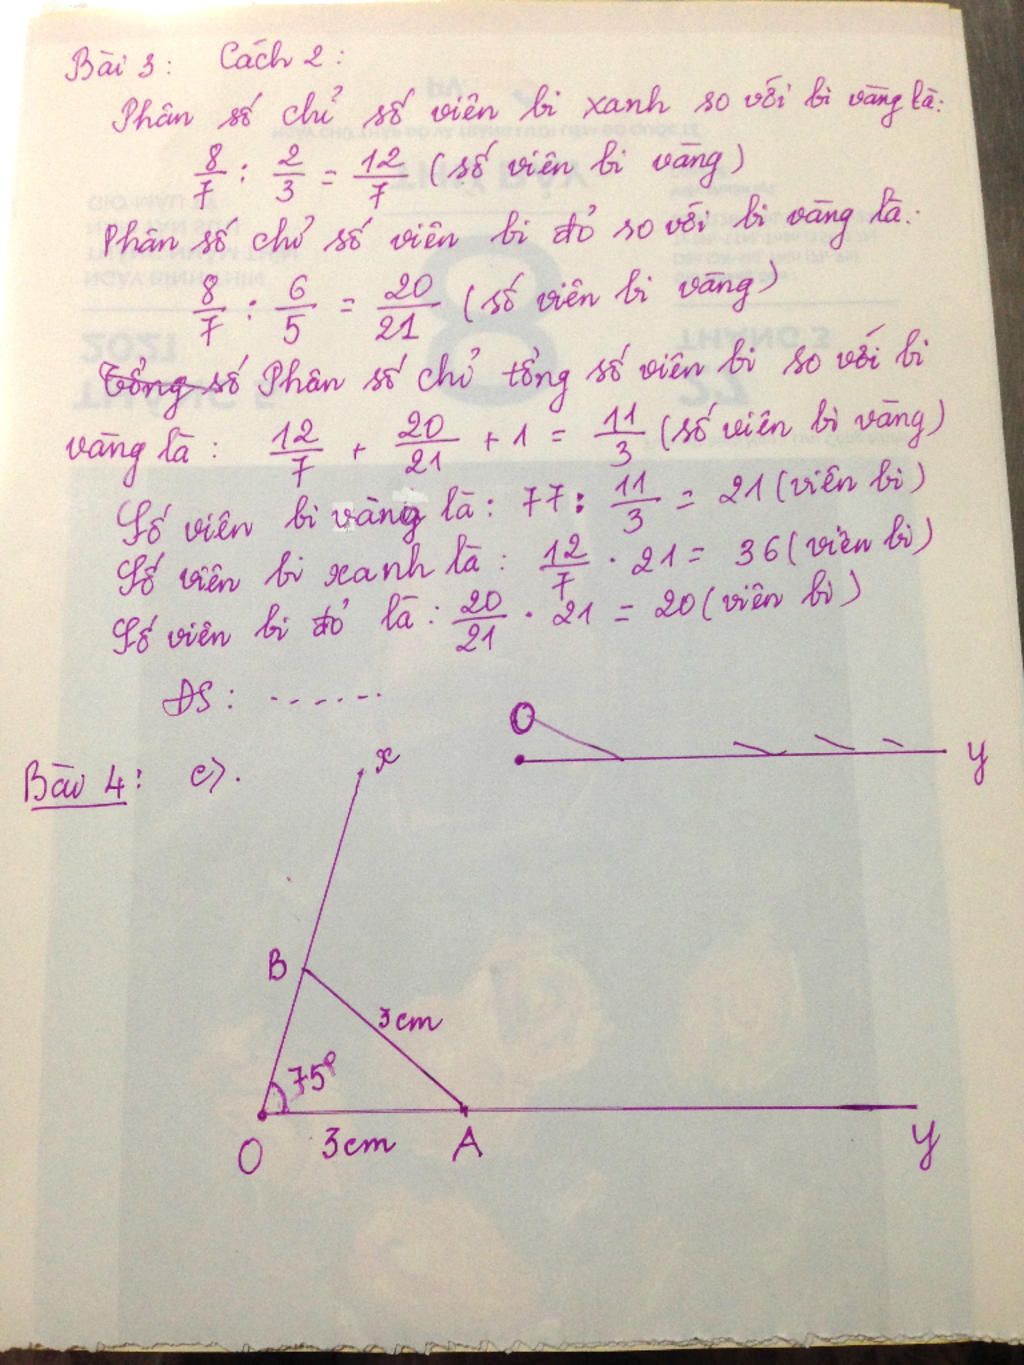 Bài 3: Cách 2:
Phân số chỉ số viên bi xanh so với bi vàng là:
8/7 : 2/3 = 12/7 (số viên bi vàng)
Phân số chỉ số viên bi đỏ so với bi vàng là:
8/7 : 6/5 = 20/21 (số viên bi vàng)
Tổng số Phân số chỉ tổng số viên bi so với bi
vàng là: 12/7 + 20/21 + 1 = 11/3 (số viên bi vàng)
Số viên bi vàng là: 77 : 11/3 = 21 (viên bi)
Số viên bi xanh là: 12/7 . 21 = 36 (viên bi)
Số viên bi đỏ là: 20/21 . 21 = 20 (viên bi)
ĐS: .......
O
y
Bài 4: c).
x
B
3cm
75°
O 3cm A y